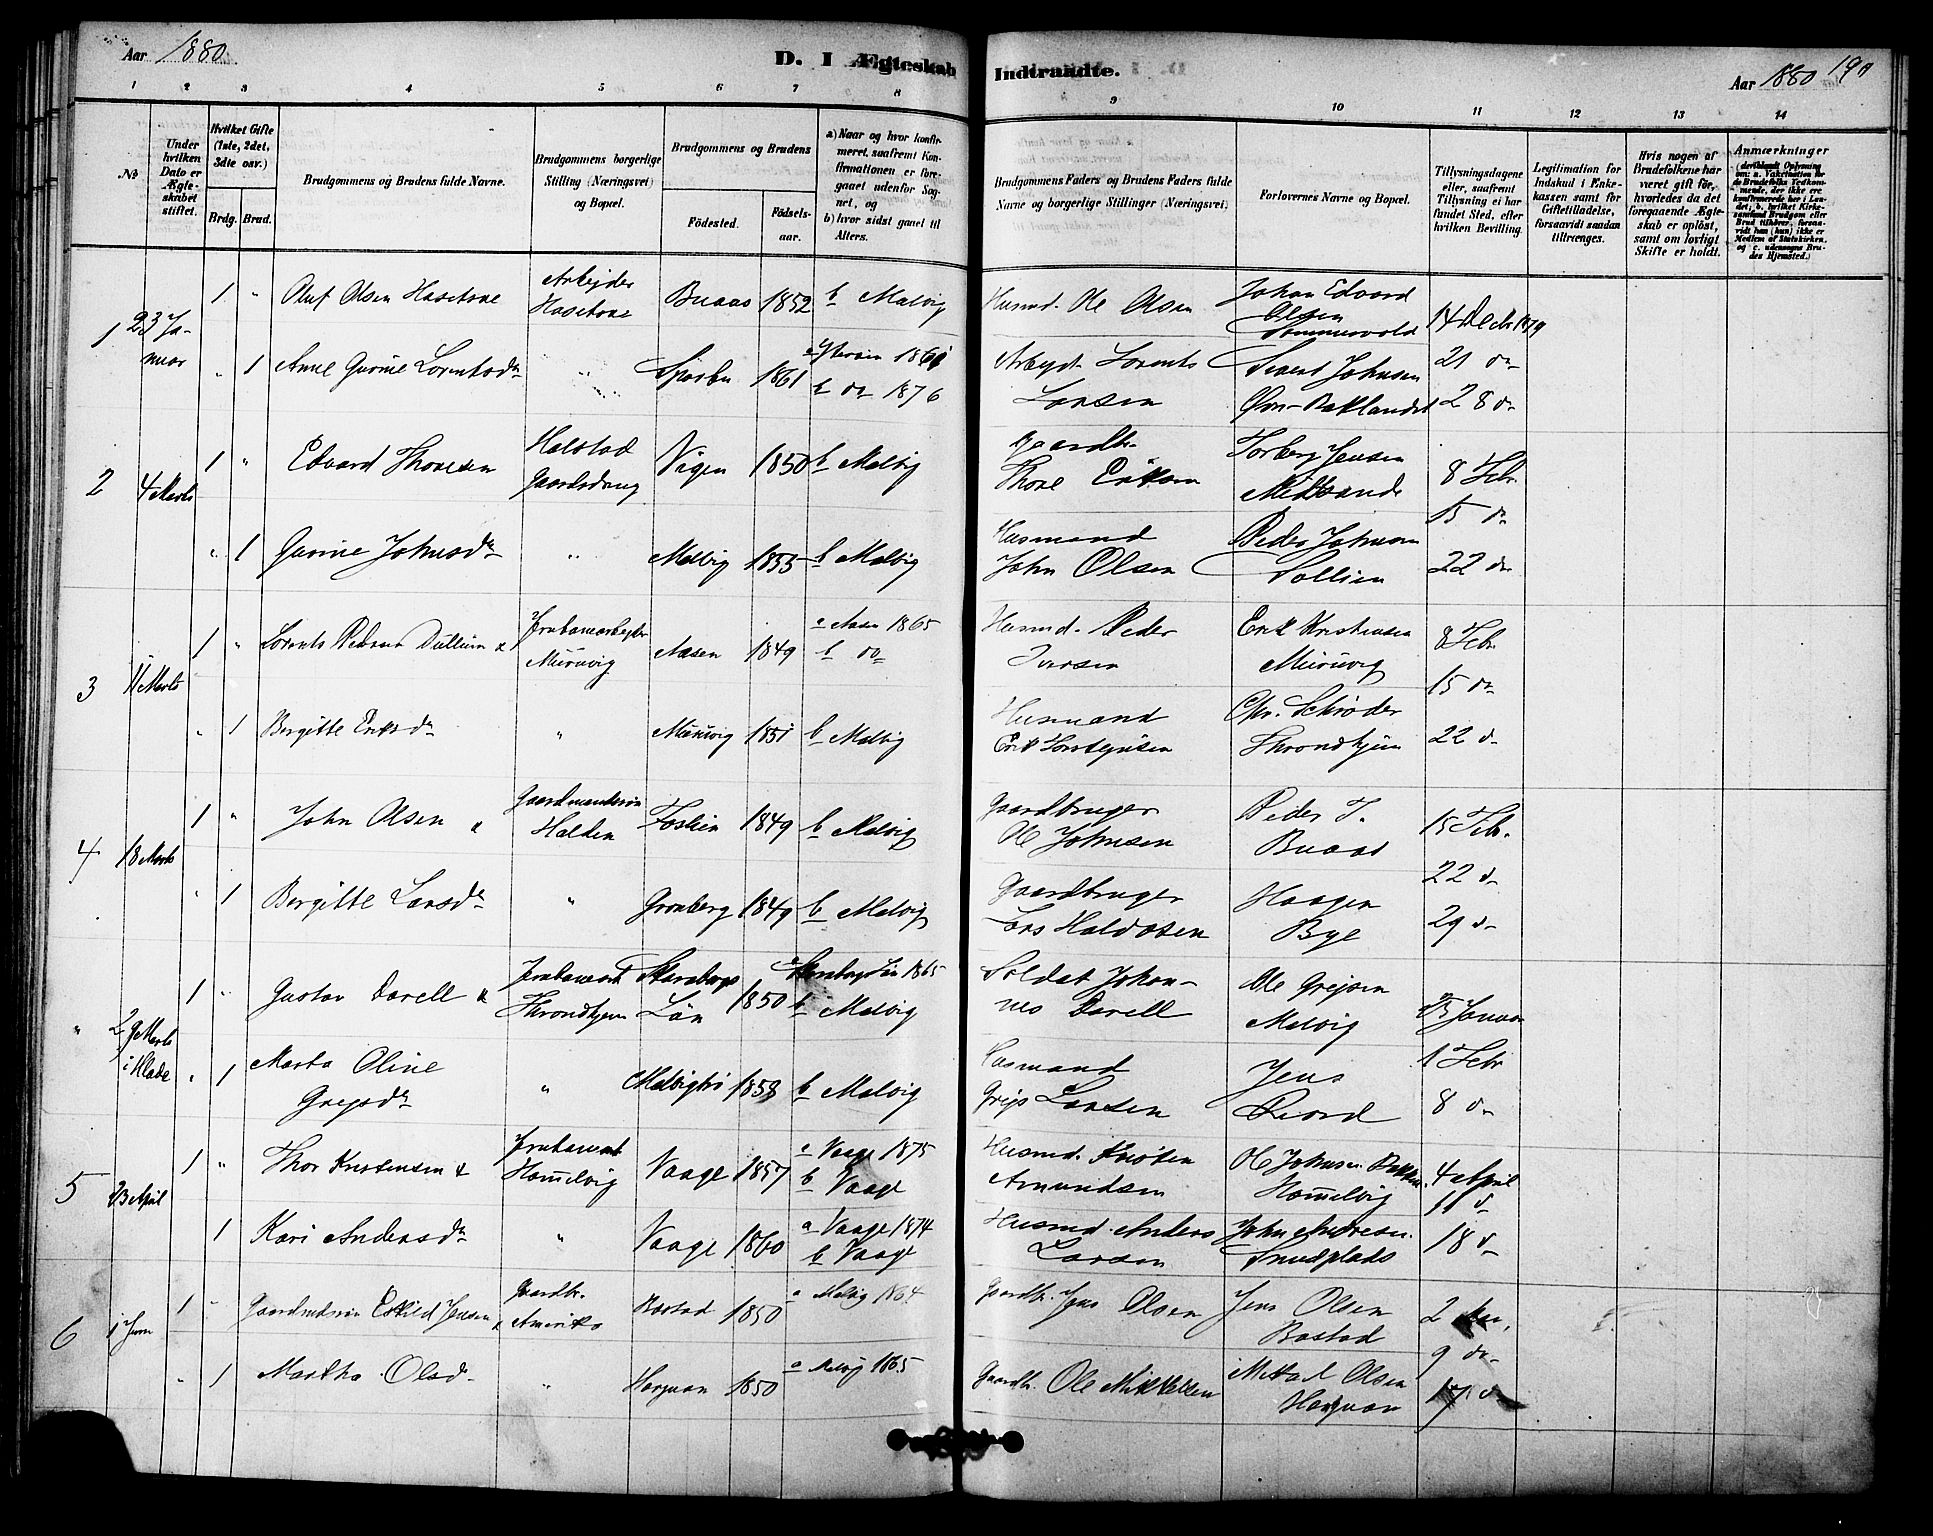 Aar 1880.
D. I Ægteskab
Indtraadte.
Aar 1880
190
1 2 3 4 5 6 7 8
9 10 11 12 13 14
No
Under hvilken Dato er Ægteskabet stiftet.
Hvilket Gifte (1ste, 2det, 3die osv.)
Brdg. Brud.
Brudgommens og Brudens fulde Navne.
Brudgommens borgerlige Stilling (Næringsvei) og Bopæl.
Brudgommens og Brudens
Fødested.
Fødselsaar.
a) Naar og hvor konfirmeret, saafremt Konfirmationen er foregaaet udenfor Sognet, og
b) hvor sidst gaaet til Alters.
Brudgommens Faders og Brudens Faders fulde Navne og borgerlige Stillinger (Næringsvei).
Forlovernes Navne og Bopæl.
Tillysningsdagene eller, saafremt Tillysning ei har fundet Sted, efter hvilken Bevilling.
Legitimation for Indskud i Enkekassen samt for Giftetilladelse, forsaavidt saadan tiltrænges.
Hvis nogen af Brudefolkene har været gift før, hvorledes da det foregaaende Ægteskab er opløst, samt om lovligt Skifte er holdt.
Anmærkninger
1 23 Januar 1 " Oluf Olsen Hasetrøe Arbejder Buaas 1852 b Malvig Husmd. Ole Olsen Johan Edvard Olsen Sommervold 14 Decbr 1879
" 1 Anne Gurine Lorentsdr " Sparbu 1861 b do 1876 Arbejdr Lorents Larsen Sivert Johnsen Øvre Baklandet 21 do
28 do
2 4 Marts 1 " Edvard Thoresen Halstad Gaardsdreng Vigen 1850 b Malvig Gaardbr. Thore Eriksen Torberg Jensen Midtsande 8 Febr.
15 do
" 1 Gurine Johnsdr " Malvig 1855 b Malvig Husmand John Olsen Peder Johnsen Sollien 22 do
3 11 Marts 1 " Lorents Pedersen Dullum Jernbanearbejder Muruvig Aasen 1849 a Aasen 1865 b do Husmd. Peder Iversen Erik Kristensen Muruvig 8 Febr.
15 do
" 1 Bergitte Eriksdr " Muruvig 1851 b Malvig Husmand Erik Torstensen Chr. Schrøder Throndhjem 22 do
4 18 Marts 1 " John Olsen Gaardmandssøn Halden Foslien 1849 b Malvig Gaardbruger Ole Johnsen Peder T. Buaas 15 Febr.
22 do
" 1 Bergitte Larsdr " Grønberg 1849 b Malvig Gaardbruger Lars Haldosen Haagen Bye 29 do
" 29 Marts i Hlade 1 " Gustav Darell Jernbanearb Throndhjem Skaraborgs Län 1850 a Skaraborgs Län 1865 b Malvig Soldat Johannes Darell Ole Grejsen Malvig 25 Januar
1 Febr
" 1 Marta Oline Grejsdr " 1858 b Malvig Husmand Grejs Larsen Jens 8 do
5 23 April 1 " Thor Kristensen Jernbanearb Hommelvig Vaage 1857 a Vaage 1875 b Vaage Husmd. Amundsen Ole Johnsen Bakken Hommelvig 4 April
11 do
1 Kari Andersdr " Vaage 1860 a Vaage 1874 b Vaage Husmd. Anders Larsen John Andresen Smedplads 18 do
6 1 Juni 1 " Gaardmdssøn Eskild Jensen Gaardbr. Amerika Bostad 1850 a Malvig 1864 Gaardbr. Jens Olsen Jens Olsen Bostad 2
9 do
" 1 Martha Olsdr " 1850 a Malvig 1865 Gaardbr. Ole Mikkelsen Mikal Olsen 17 do